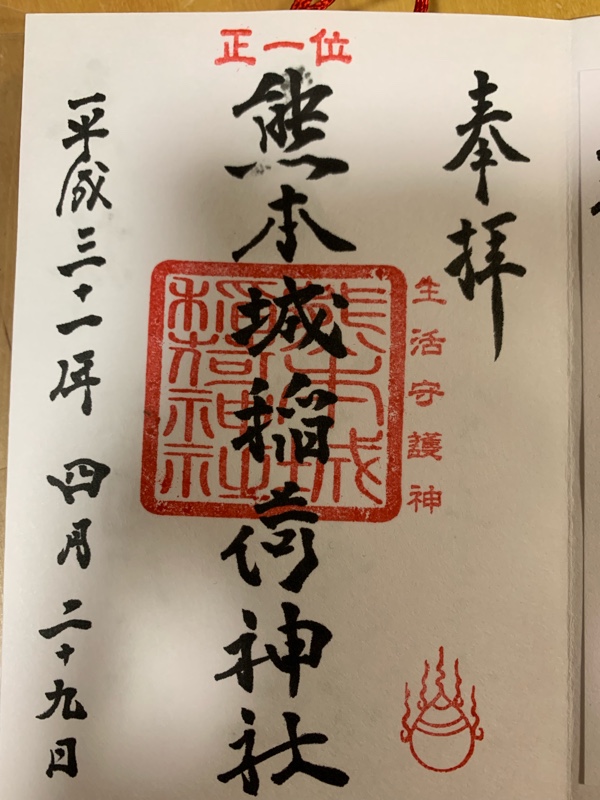 奉拝
生活守護神
正一位
熊本城稲荷神社
熊本城
稲荷神社
平成三十一年 四月 二十九日